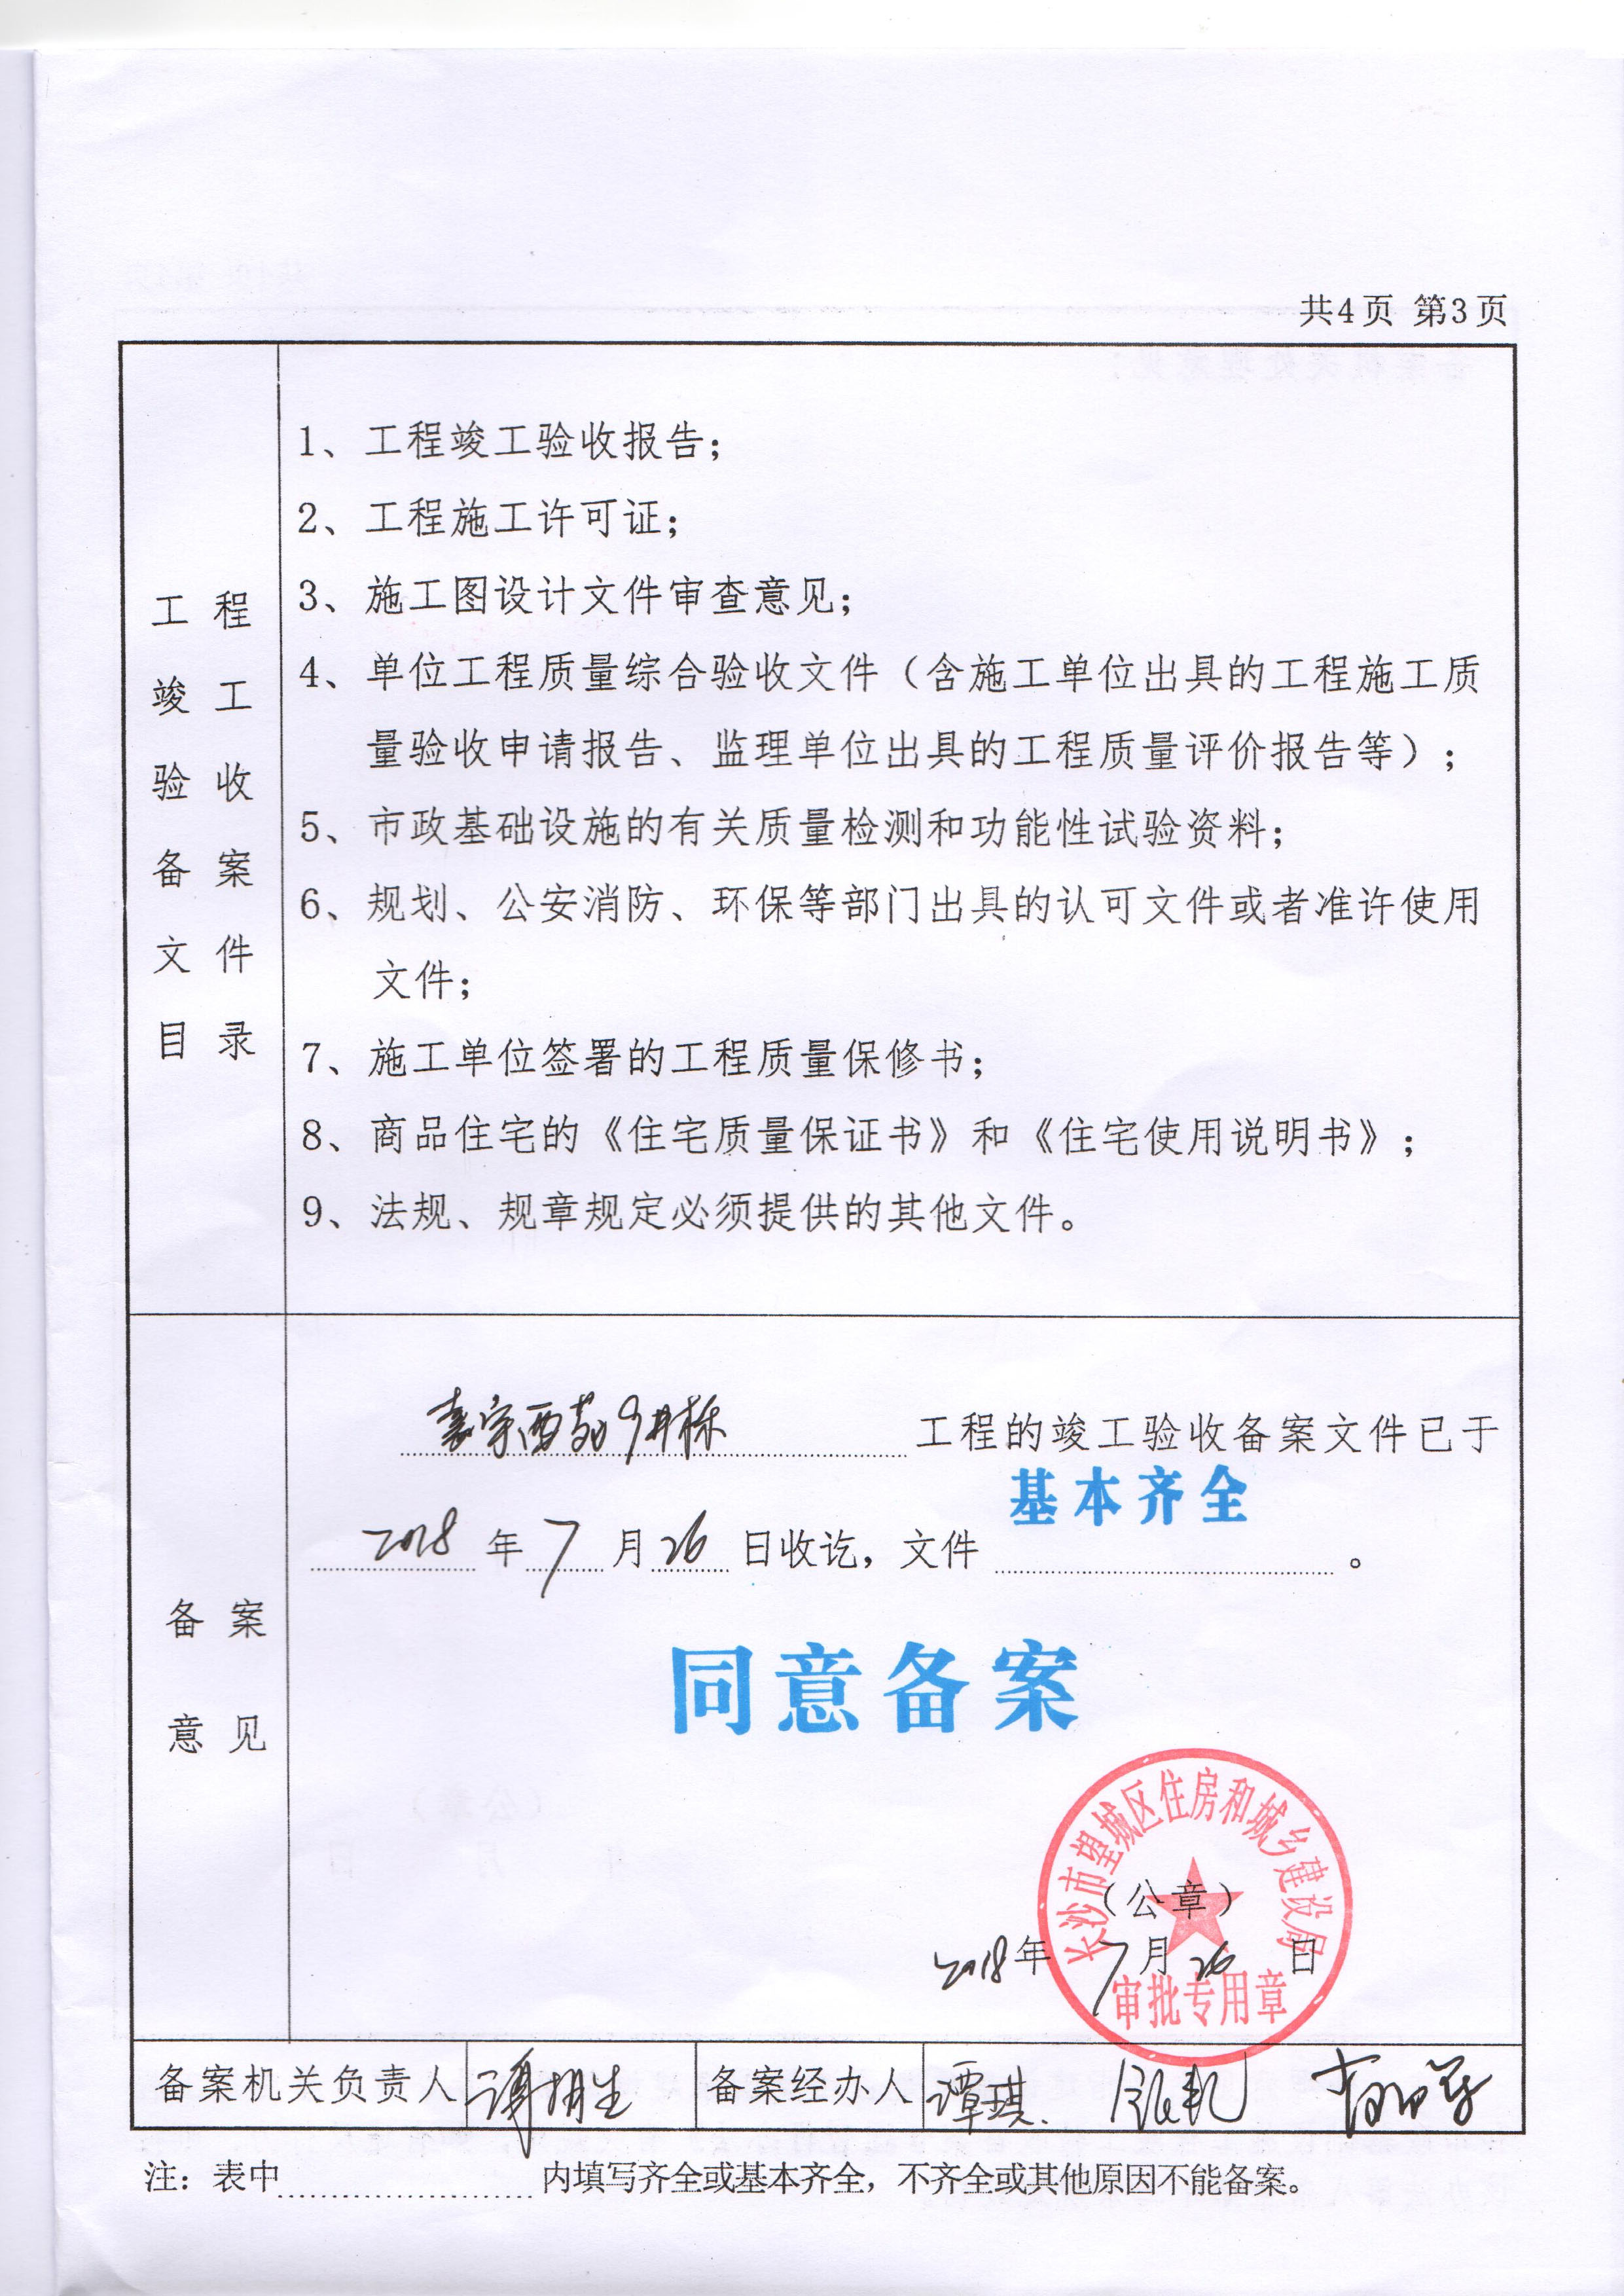 共4页 第3页
工程
竣工
验收
备案
文件
目录
1、工程竣工验收报告；
2、工程施工许可证；
3、施工图设计文件审查意见；
4、单位工程质量综合验收文件（含施工单位出具的工程施工质
量验收申请报告、监理单位出具的工程质量评价报告等）；
5、市政基础设施的有关质量检测和功能性试验资料；
6、规划、公安消防、环保等部门出具的认可文件或者准许使用
文件；
7、施工单位签署的工程质量保修书；
8、商品住宅的《住宅质量保证书》和《住宅使用说明书》；
9、法规、规章规定必须提供的其他文件。
备案
意见
西苑9#栋 工程的竣工验收备案文件已于
基本齐全
2018 年 7 月 26 日收讫，文件 。
同意备案
长沙市望城区住房和城乡建设局
（公章）
2018年 7月 26 日
审批专用章
备案机关负责人 备案经办人 谭琪
注：表中 内填写齐全或基本齐全，不齐全或其他原因不能备案。